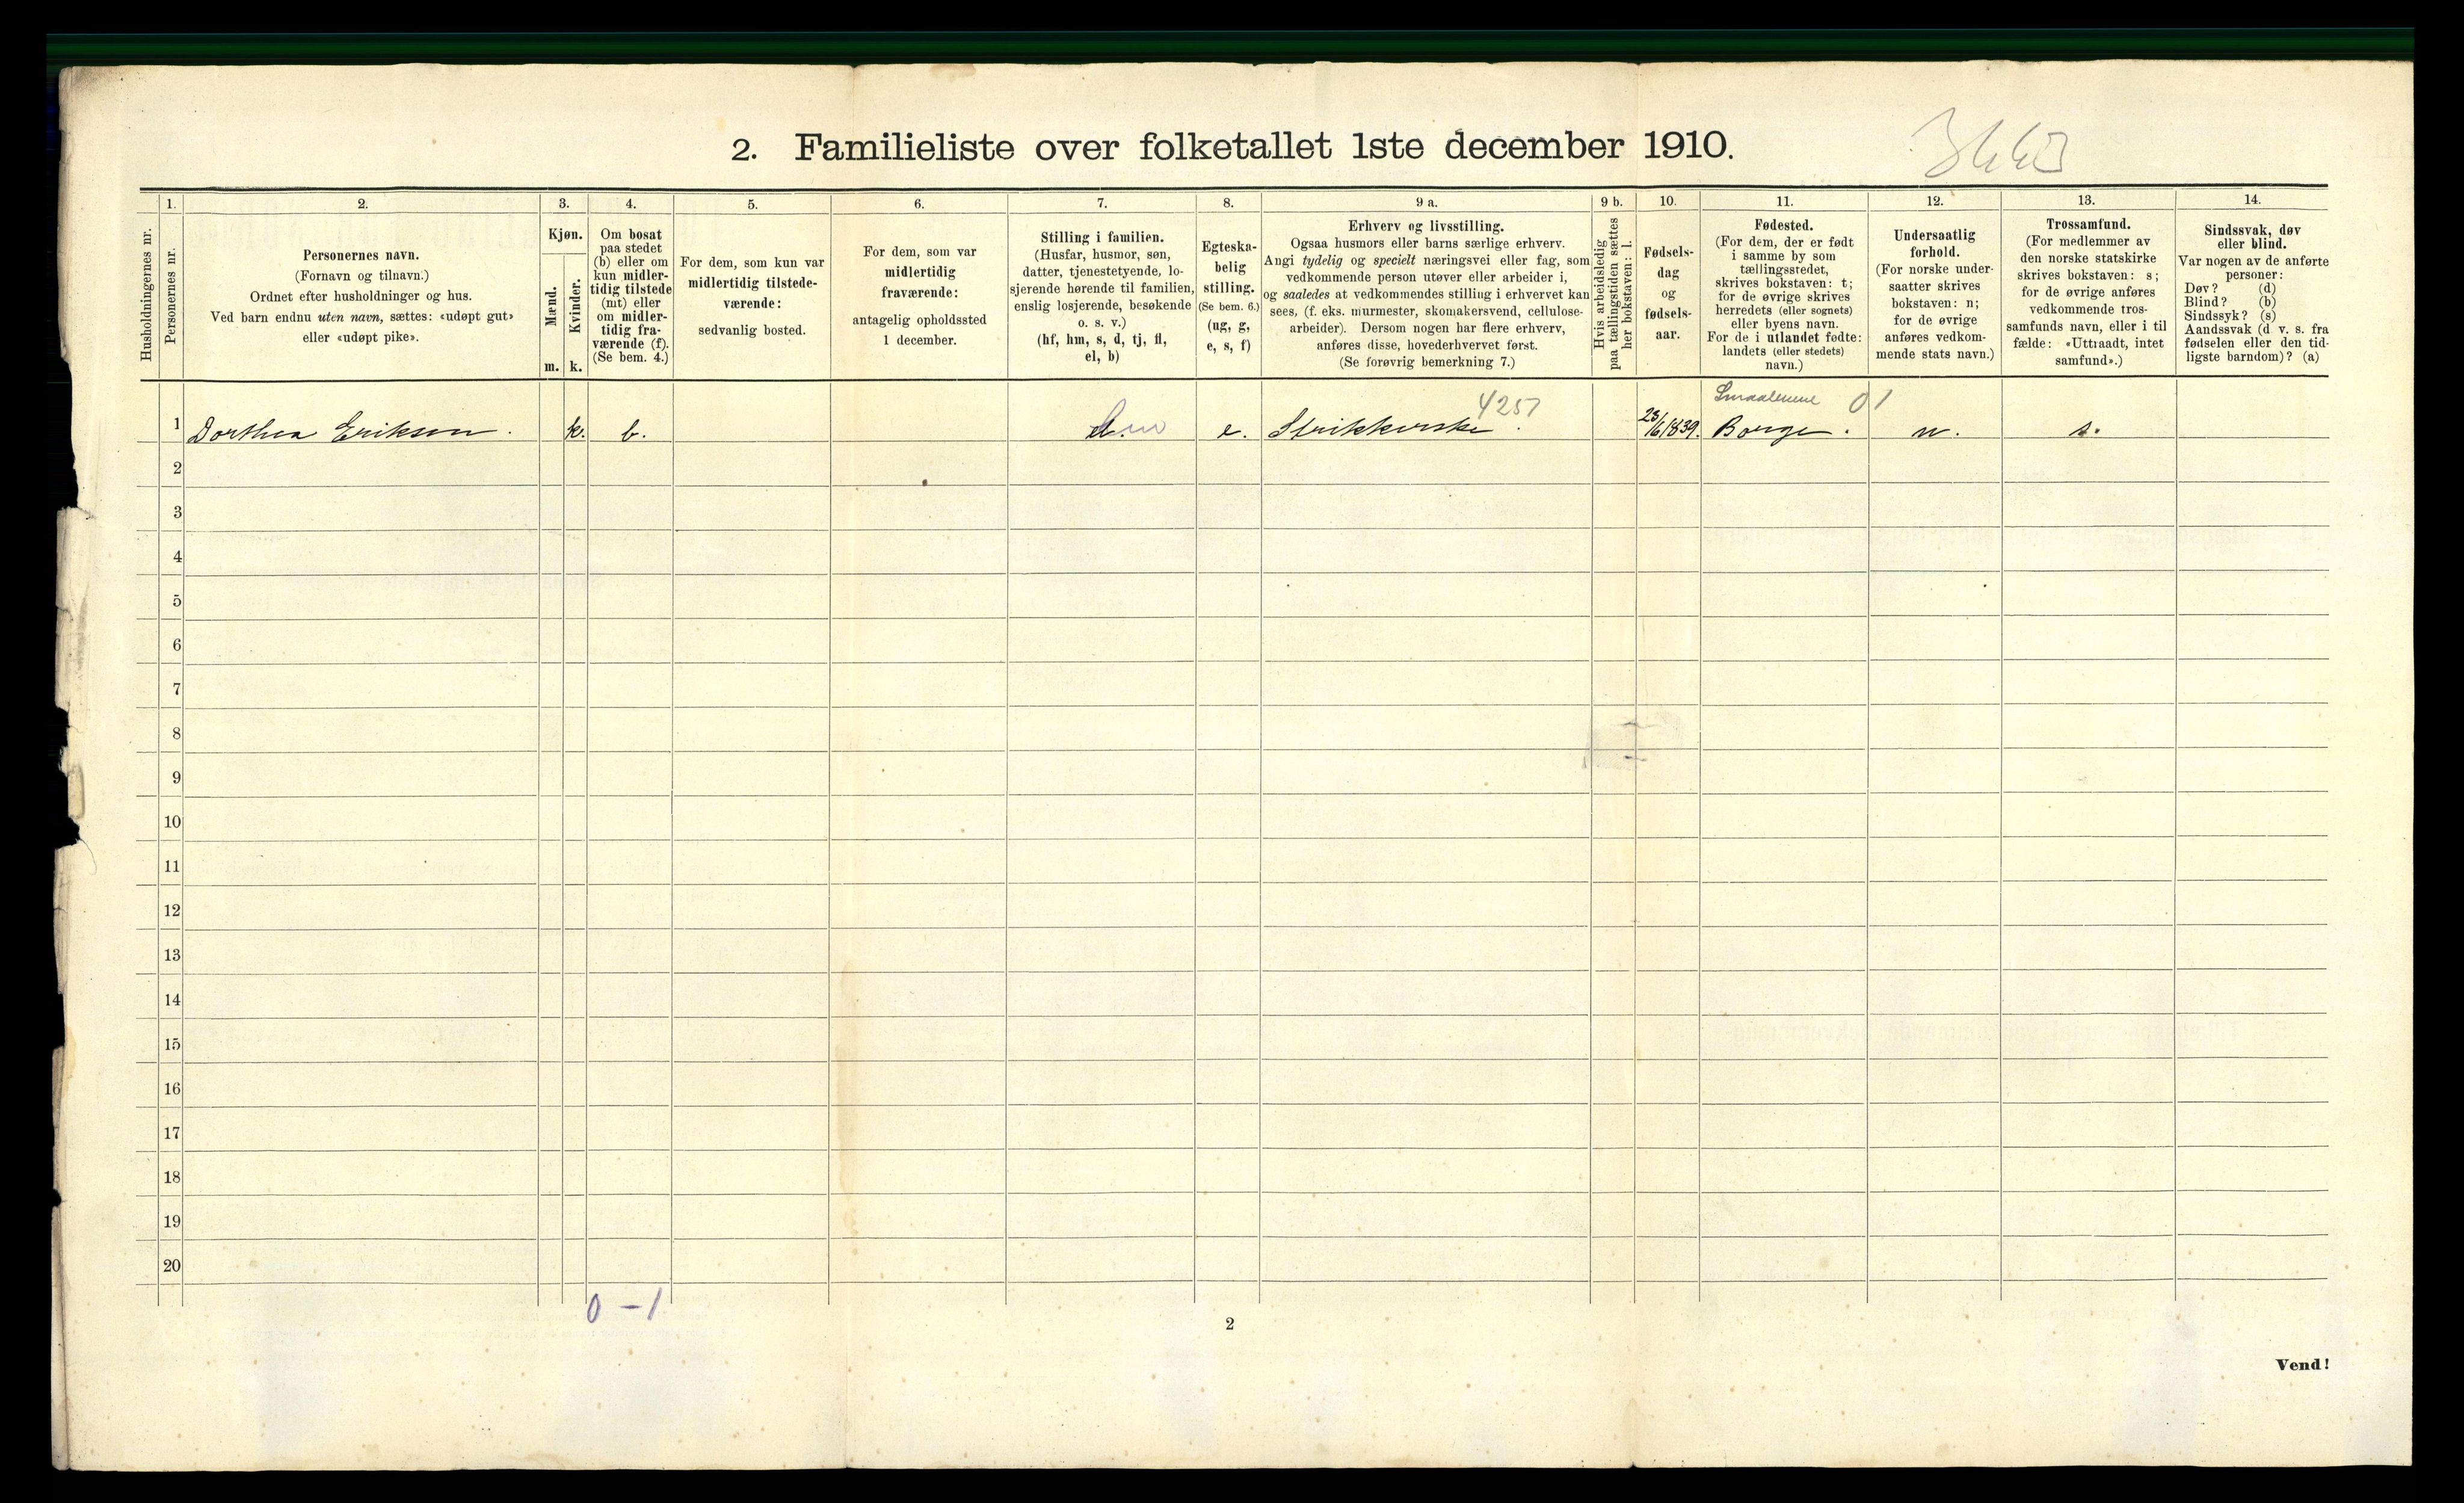 2. Familieliste over folketallet 1ste december 1910.
Husholdningernes nr.
1.
Personernes nr.
2.
Personernes navn.
(Fornavn og tilnavn.)
Ordnet efter husholdninger og hus.
Ved barn endnu uten navn, sættes: «udøpt gut»
eller «udøpt pike».
3.
Kjøn.
Mænd.
Kvinder.
m. k.
4.
Om bosat
paa stedet
(b) eller om
kun midler-
tidig tilstede
(mt) eller
om midler-
tidig fra-
værende (f).
(Se bem. 4.)
5.
For dem, som kun var
midlertidig tilstede-
værende:
sedvanlig bosted.
6.
For dem, som var
midlertidig
fraværende:
antagelig opholdssted
1 december.
7.
Stilling i familien.
(Husfar, husmor, søn,
datter, tjenestetyende, lo-
sjerende hørende til familien,
enslig losjerende, besøkende
o. s. v.)
(hf, hm, s, d, tj, fl,
el, b)
8.
Egteska-
belig
stilling.
(Se bem. 6.)
(ug, g,
e, s, f)
9 a.
Erhverv og livsstilling.
Ogsaa husmors eller barns særlige erhverv.
Angi tydelig og specielt næringsvei eller fag, som
vedkommende person utøver eller arbeider i,
og saaledes at vedkommendes stilling i erhvervet kan
sees, (f. eks. murmester, skomakersvend, cellulose-
arbeider). Dersom nogen har flere erhverv,
anføres disse, hovederhvervet først.
(Se forøvrig bemerkning 7.)
9 b.
Hvis arbeidsledig
paa tællingstiden sættes
her bokstaven: l.
10.
Fødsels-
dag
og
fødsels-
aar.
11.
Fødested.
(For dem, der er født
i samme by som
tællingsstedet,
skrives bokstaven: t;
for de øvrige skrives
herredets (eller sognets)
eller byens navn.
For de i utlandet fødte:
landets (eller stedets)
navn.)
12.
Undersaatlig
forhold.
(For norske under-
saatter skrives
bokstaven: n;
for de øvrige
anføres vedkom-
mende stats navn.)
13.
Trossamfund.
(For medlemmer av
den norske statskirke
skrives bokstaven: s;
for de øvrige anføres
vedkommende tros-
samfunds navn, eller i til
fælde: «Uttraadt, intet
samfund».)
14.
Sindssvak, døv
eller blind.
Var nogen av de anførte
personer:
Døv? (d)
Blind? (b)
Sindssyk? (s)
Aandssvak (d. v. s. fra
fødselen eller den tid-
ligste barndom)? (a)
4257
Smaalenene 01
1 Dorthea Eriksen. k. b. e. Strikkerske. 23/6 1839. Borge. n. s.
2
3
4
5
6
7
8
9
10
11
12
13
14
15
16
17
18
19
20
0 - 1
2
Vend!